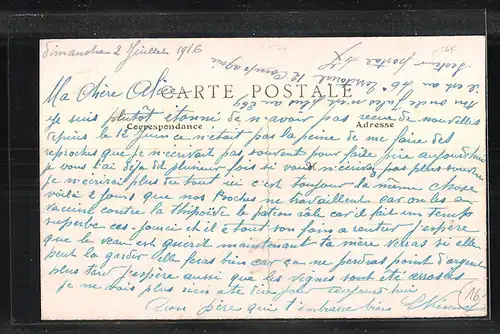 Dimanche 2 Juillet 1916
Ton oncle Jules n'est plus au 264
il est au 46e Territorial 12e Compagnie
Secteur postal
CARTE POSTALE
Ma Chère Alice
Correspondance
Adresse
je suis plutôt étonné de n'avoir pas reçue de nouvelles
depuis le 12 Juin ce n'était pas la peine de me faire des
reproches que je n'écrivait pas souvent pour faire pire aujourd'hui
je vous l'ai déjà dit plusieur fois si vous n'écrivez pas plus souvent
je n'écrirai plus du tout ici c'est toujour la même chose
voilà 2 jours que nos Boches ne travaillent car on les a
vacciné contre la thipoïde le patron râle car il fait un temps
superbe ces jourci et il a tout son foin a rentrer j'espère
que le veau est guérit maintenant ta mère verras si elle
peut la garder elle feras bien car on ne perdras point d'argent
plus tard j'espère aussi que les vignes sont été arrosées
je ne vois plus rien a te dire pour aujourd'hui
Ton père qui t'embrasse bien
16